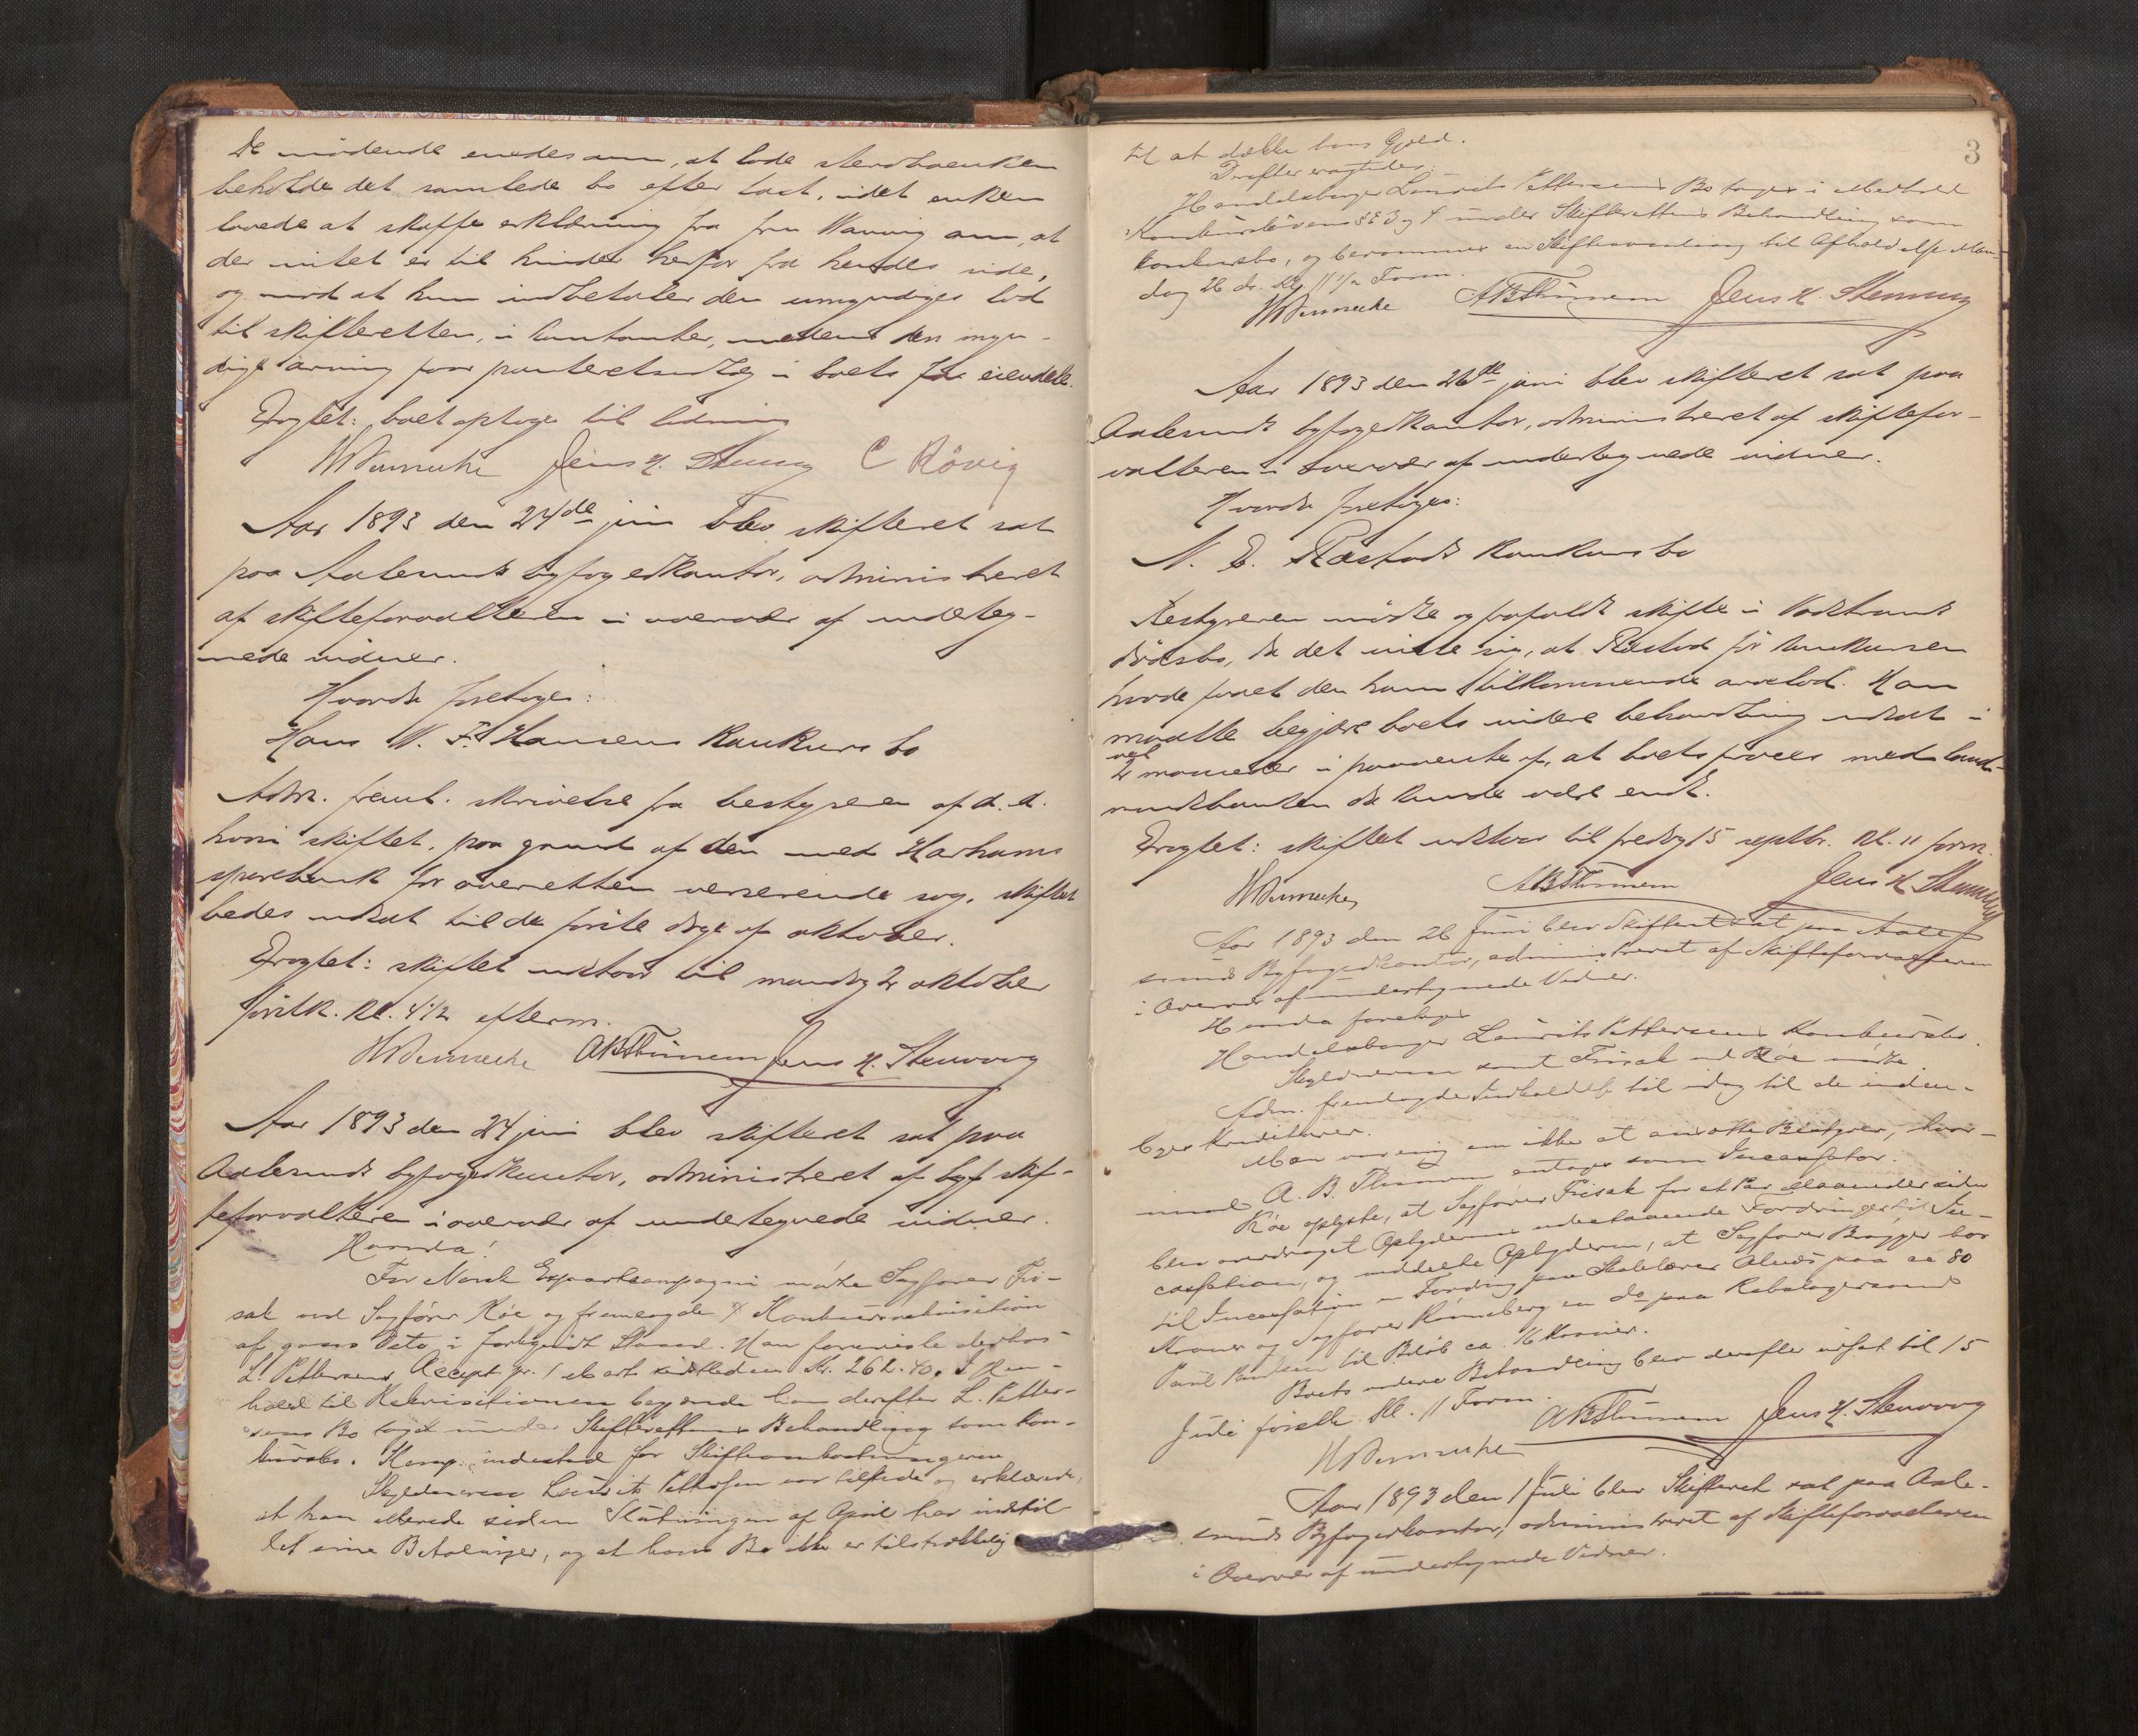 De mødende enedes om, at lade sterboenken
beholde det samlede bo efter taxt, idet enken
lovede at skaffe erklæring fra fru Warvig om, at
der intet er til hinder herfor fra hendes side,
og mod at hun indbetaler den umyndiges lod
til skifteretten, i kontanter, medens den myn-
dige arving faar panteretsudlæg i boets faste eiendele.
Eragtet: boet optages til lodning
WBennecke Jens H. Stenvaag C Rövig
Aar 1893 den 24de juni blev skifteret sat
paa Aalesunds byfogedkontor, administreret
af skifteforvalteren i overvær af underteg-
nede vidner.
Hvorda foretoges:
Hans W. F. Hansens konkursbo
Adm. freml. skrivelse fra bestyreren af d. d.
hvori skiftet, paa grund af den med Harhams
sparebank for overretten verserende sag, skiftet
bedes udsat til de første dage af oktober.
Eragtet: skiftet udstaar til mandag 2 oktober
førstk. kl. 4 1/2 efterm.
WBennecke ABThunem Jens H. Stenvaag
Aar 1893 den 24 juni blev skifteret sat paa
Aalesunds byfogedkontor, administreret af byf skif-
teforvalteren i overvær af undertegnede vidner.
Hvorda!
For Norsk Exportcompagni mødte Sagfører Fri-
sak ved Sagfører Röe og fremlagde Konkursrekvisition
af gaars Dato i forkyndt Stand. Han foreviste derhos
L. Pettersens Accept pr. 1 Marts sidstleden Kr. 262.40. I Hen-
hold til Rekvisitionen begjærede han derefter L. Petter-
sens Bo taget under Skifterettens Behandling som Kon-
kursbo. Komp. indestod for Skifteomkostningerne
Skyldneren Laurits Pettersen var tilstede og erklærede,
at han allerede siden Slutningen af April har indstil-
let sine Betalinger, og at hans Bo ikke er tilstrækkelig
3
til at dække hans Gjæld.
Derefter eragtedes:
Handelsborger Laurits Pettersens Bo tages i Medhold
Konkurslovens §§ 3 og 4 under Skifterettens Behandling som
Konkursbo, og berammes en Skiftesamling til Afholdelse Man-
dag 26 ds. Kl. 11 1/2 Form.
WBennecke ABThunem Jens H. Stenvaag
Aar 1893 den 26de juni blev skifteret sat paa
Aalesunds byfogedkontor, administreret af skiftefor-
valteren i overvær af undertegnede vidner.
Hvorda foretoges:
N. E. Røstads konkursbo
Bestyreren mødte og frafaldt skifte i Vadstrands
dødsbo, da det viste sig, at Røstad før konkursen
havde faaet den ham tilkommende arvelod. Han
maatte begjære boets videre behandling udsat i
vel 2 maaneder i paavente af, at boets proces med land-
mandsbanken da kunde være endt.
Eragtet: skiftet udstaar til fredag 15 septbr. kl. 11 form.
WBennecke ABThunem Jens H. Stenvaag
Aar 1893 den 26 Juni blev Skifteret sat paa Aale-
sunds Byfogedkontor, administreret af Skifteforvalteren
i Overvær af undertegnede Vidner.
Hvorda foretoges
Handelsborger Laurits Pettersens Konkursbo.
Skyldneren samt Frisak ved Röe mødte
Adm. fremlagde Indkaldelse til idag til de inden-
byes Kreditorer.
Man var enig om ikke at ansætte Bestyrer, hvor-
imod A. B. Thunem antoges som Incassator.
Röe oplyste, at Sagfører Frisak for et Par Maaneder siden
blev overdraget Opbyderens udestaaende Fordringer til In-
cassation, og meddelte Opbyderen, at Sagfører Brøgger har
til Incassation en Fordring paa Skolelærer Alnes paa ca 80
Kroner og Sagfører Rønneberg en do paa Rebslagersvend
Paul Paulsen til Beløb ca. 16 Kroner.
Boets videre Behandling blev derefter udsat til 15
Juli førstk. Kl. 11 Form.
WBennecke ABThunem Jens H. Stenvaag
Aar 1893 den 1 Juli blev Skifteret sat paa Aale-
sunds Byfogedkontor, administreret af Skifteforvalteren
i Overvær af undertegnede Vidner.